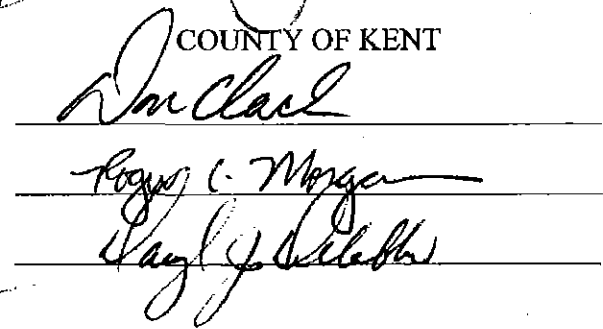 COUNTY OF KENT
Don Clark
Roger C. Morgan
Daryl J.